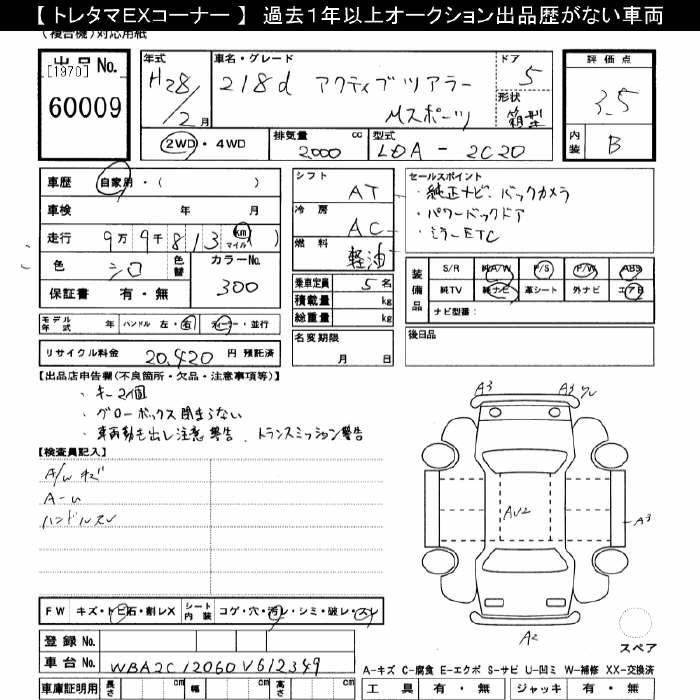 【 トレタマEXコーナー 】 過去1年以上オークション出品歴がない車両
(複合機)対応用紙
出品No. [1970] 60009
年式 H28/2月
車名・グレード 218d アクティブツアラー Mスポーツ
ドア 5
形状 箱型
評価点 3.5
内装 B
2WD・4WD
排気量 2000 cc
型式 LDA-2C20
車歴 自家用・( )
車検 年 月
走行 9万9千813 km マイル ( )
色 シロ 色替
カラーNo. 300
保証書 有・無
シフト AT
冷房 AC
燃料 軽油
乗車定員 5名
積載量 kg
総重量 kg
セールスポイント
・純正ナビ、バックカメラ
・パワーバックドア
・ミラーETC
装備品 S/R 純A/W P/S P/W ABS
純TV 純ナビ 革シート 外ナビ エアB
ナビ型番:
モデル年式 年 ハンドル 左・右 ディーラー・並行
名変期限 月 日
後日品
リサイクル料金 20,420 円 預託済
【出品店申告欄(不良箇所・欠品・注意事項等)】
・キー2個
・グローボックス閉まらない
・車両動き出し注意警告、トランスミッション警告
【検査員記入】
A/Wキズ
A-U
ハンドルスレ
A3
A3
AU2
A3
A2
スペア
FW キズ・トビ石・割レX シート内装 コゲ・穴・汚レ・シミ・破レ・スレ
登録No.
車台No. WBA2C12060V612349
A-キズ C-腐食 E-エクボ S-サビ U-凹ミ W-補修 XX-交換済
車庫証明用 長さ cm 幅 cm 高さ cm
工具 有・無 ジャッキ 有・無